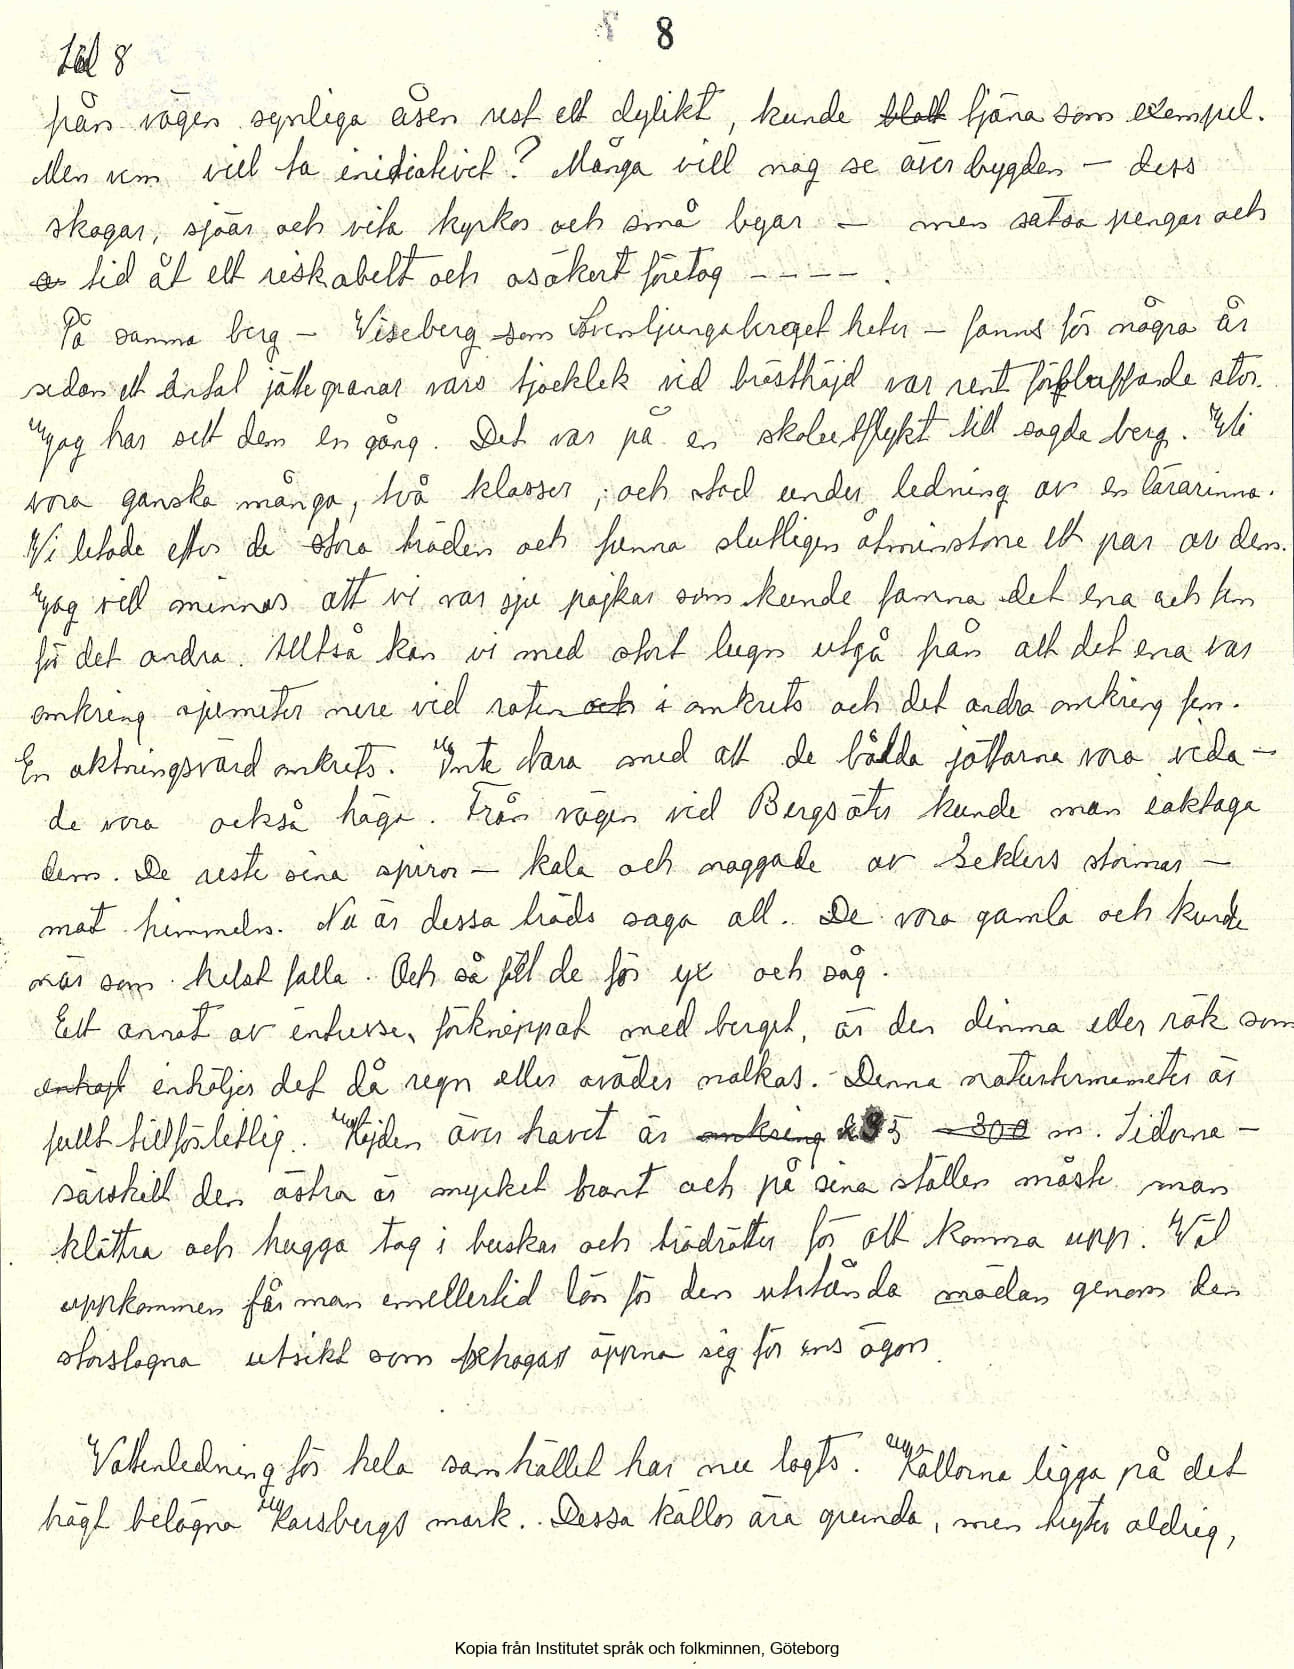 8
Lit 8
från vägen synliga åsen rest ett dylikt, kunde blott tjäna som exempel.
Men vem vill ta initiativet? Många vill nog se över bygden – dess
skogar, sjöar och vita kyrkor och små byar – men satsa pengar och
tid åt ett riskabelt och osäkert företag – – – – .
På samma berg – Viseberg som Svenljungaberget heter – fanns för några år
sedan ett antal jättegranar vars tjocklek vid brösthöjd var rent förbluffande stor.
Jag har sett dem en gång. Det var på en skolutflykt till sagda berg. Vi
vora ganska många, två klasser, och stod under ledning av en lärarinna.
Vi letade efter de stora träden och funno slutligen åtminstone ett par av dem.
Jag vill minnas att vi var sju pojkar som kunde famna det ena och fem
för det andra. Alltså kan vi med stort lugn utgå från att det ena var
omkring sjumeter nere vid roten och i omkrets och det andra omkring fem.
En aktningsvärd omkrets. Inte bara med att de bådda jättarna vora vida –
de vora också höga. Från vägen vid Bergsäter kunde man iakttaga
dem. De reste sina spiror – kala och naggade av seklers stormar –
mot himmeln. Nu är dessa träds saga all. De vora gamla och kunde
när som helst falla. Och så föll de för yx och såg.
Ett annat av intresse, förknippat med berget, är den dimma eller rök som
inhöljer det då regn eller oväder nalkas. Denna naturtermometer är
fullt tillförlitlig. Höjden över havet är omkring 5 – 300 m. Sidorna –
särskilt den östra är mycket brant och på sina ställen måste man
klättra och hugga tag i buskar och trädrötter för att komma upp. Väl
uppkommen får man emellertid lön för den utstånda mödan genom den
storslagna utsikt som behagar öppna sig för ens ögon.
Vattenledning för hela samhället har nu lagts. Källorna ligga på det
högt belägna Karsbergs mark. Dessa källor äro grunda, men tryter aldrig,
Kopia från Institutet språk och folkminnen, Göteborg